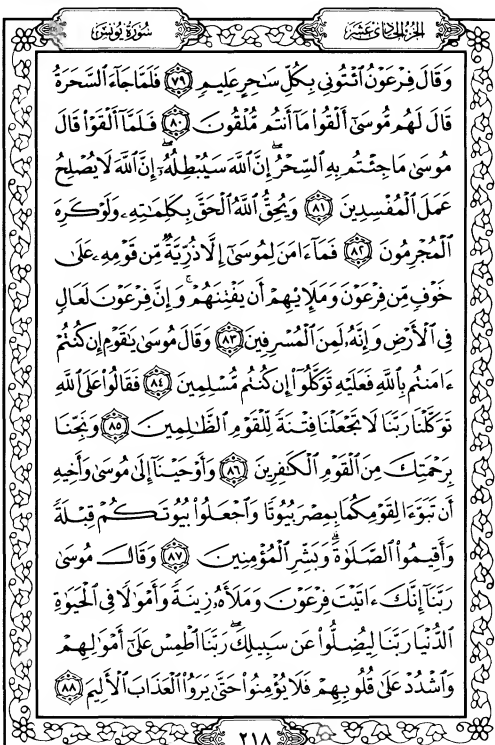 سُورَةُ يُونُسَ الجُزْءُ الحَادِي عَشَرَ
وَقَالَ فِرْعَوْنُ ٱئْتُونِى بِكُلِّ سَٰحِرٍ عَلِيمٍ ﴿٧٩﴾ فَلَمَّا جَآءَ ٱلسَّحَرَةُ
قَالَ لَهُم مُّوسَىٰٓ أَلْقُوا۟ مَآ أَنتُم مُّلْقُونَ ﴿٨٠﴾ فَلَمَّآ أَلْقَوْا۟ قَالَ
مُوسَىٰ مَا جِئْتُم بِهِ ٱلسِّحْرُ ۖ إِنَّ ٱللَّهَ سَيُبْطِلُهُۥٓ ۖ إِنَّ ٱللَّهَ لَا يُصْلِحُ
عَمَلَ ٱلْمُفْسِدِينَ ﴿٨١﴾ وَيُحِقُّ ٱللَّهُ ٱلْحَقَّ بِكَلِمَٰتِهِۦ وَلَوْ كَرِهَ
ٱلْمُجْرِمُونَ ﴿٨٢﴾ فَمَآ ءَامَنَ لِمُوسَىٰٓ إِلَّا ذُرِّيَّةٌ مِّن قَوْمِهِۦ عَلَىٰ
خَوْفٍ مِّن فِرْعَوْنَ وَمَلَإِي۟هِمْ أَن يَفْتِنَهُمْ ۚ وَإِنَّ فِرْعَوْنَ لَعَالٍ
فِى ٱلْأَرْضِ وَإِنَّهُۥ لَمِنَ ٱلْمُسْرِفِينَ ﴿٨٣﴾ وَقَالَ مُوسَىٰ يَٰقَوْمِ إِن كُنتُمْ
ءَامَنتُم بِٱللَّهِ فَعَلَيْهِ تَوَكَّلُوٓا۟ إِن كُنتُم مُّسْلِمِينَ ﴿٨٤﴾ فَقَالُوا۟ عَلَى ٱللَّهِ
تَوَكَّلْنَا رَبَّنَا لَا تَجْعَلْنَا فِتْنَةً لِّلْقَوْمِ ٱلظَّٰلِمِينَ ﴿٨٥﴾ وَنَجِّنَا
بِرَحْمَتِكَ مِنَ ٱلْقَوْمِ ٱلْكَٰفِرِينَ ﴿٨٦﴾ وَأَوْحَيْنَآ إِلَىٰ مُوسَىٰ وَأَخِيهِ
أَن تَبَوَّءَا لِقَوْمِكُمَا بِمِصْرَ بُيُوتًا وَٱجْعَلُوا۟ بُيُوتَكُمْ قِبْلَةً
وَأَقِيمُوا۟ ٱلصَّلَوٰةَ ۗ وَبَشِّرِ ٱلْمُؤْمِنِينَ ﴿٨٧﴾ وَقَالَ مُوسَىٰ
رَبَّنَآ إِنَّكَ ءَاتَيْتَ فِرْعَوْنَ وَمَلَأَهُۥ زِينَةً وَأَمْوَٰلًا فِى ٱلْحَيَوٰةِ
ٱلدُّنْيَا رَبَّنَا لِيُضِلُّوا۟ عَن سَبِيلِكَ ۖ رَبَّنَا ٱطْمِسْ عَلَىٰٓ أَمْوَٰلِهِمْ
وَٱشْدُدْ عَلَىٰ قُلُوبِهِمْ فَلَا يُؤْمِنُوا۟ حَتَّىٰ يَرَوُا۟ ٱلْعَذَابَ ٱلْأَلِيمَ ﴿٨٨﴾
٢١٨